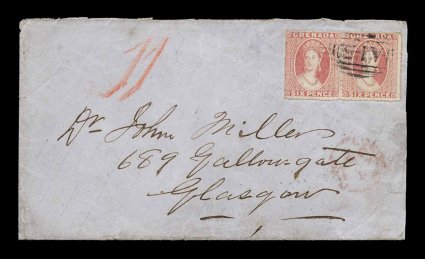 GRENADA GRENADA
SIX PENCE SIX PENCE
Dr John Miller
689 Gallowgate
Glasgow